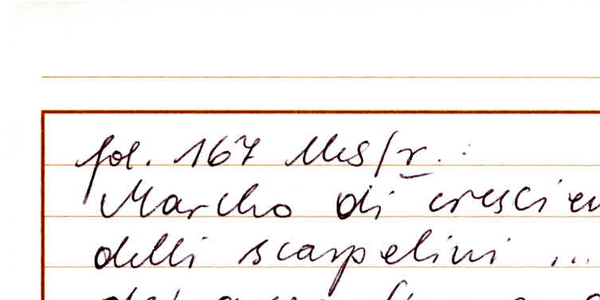 fol. 167 Mss/r. :
Marcho di crescien
delli scarpelini ...